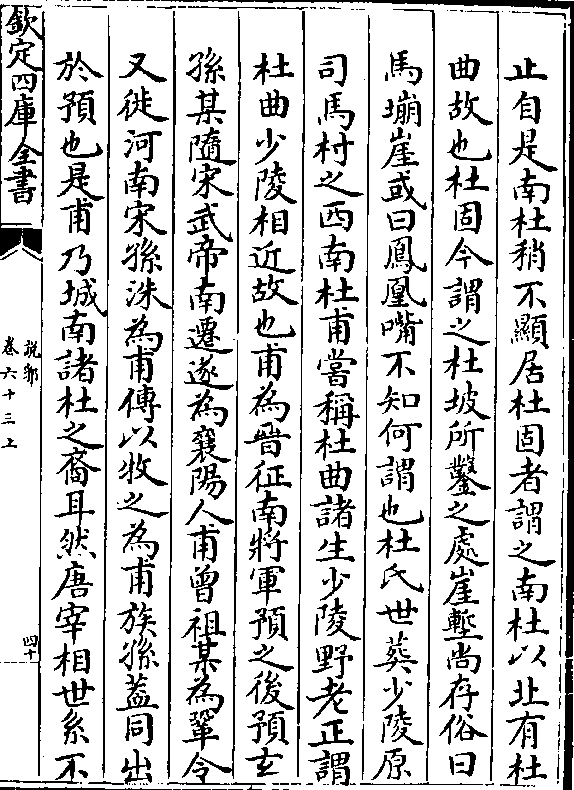 止自是南杜稍不顯居杜固者謂之南杜以北有杜
曲故也杜固今謂之杜坡所鑿之處崖塹尚存俗曰
馬塴崖或曰鳳凰嘴不知何謂也杜氏世葬少陵原
司馬村之西南杜甫嘗稱杜曲諸生少陵野老正謂
杜曲少陵相近故也甫為晉征南將軍預之後預玄
孫某隨宋武帝南遷遂為襄陽人甫曾祖某為鞏令
又徙河南宋孫洙為甫傳以牧之為甫族孫蓋同出
於預也是甫乃城南諸杜之裔耳然唐宰相世系不
欽定四庫全書
說郛
卷六十三上
四十